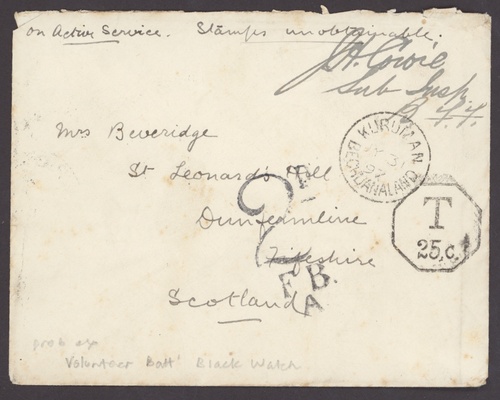 on Active Service. Stamps unobtainable.
Sub Insp.
KURUMAN
BECHUANALAND
Mrs Beveridge
St Leonard's Hill
Dunfermline
Fifeshire
Scotland
T
25.c.
2
F.B.
A
Volunteer Batt' Black Watch